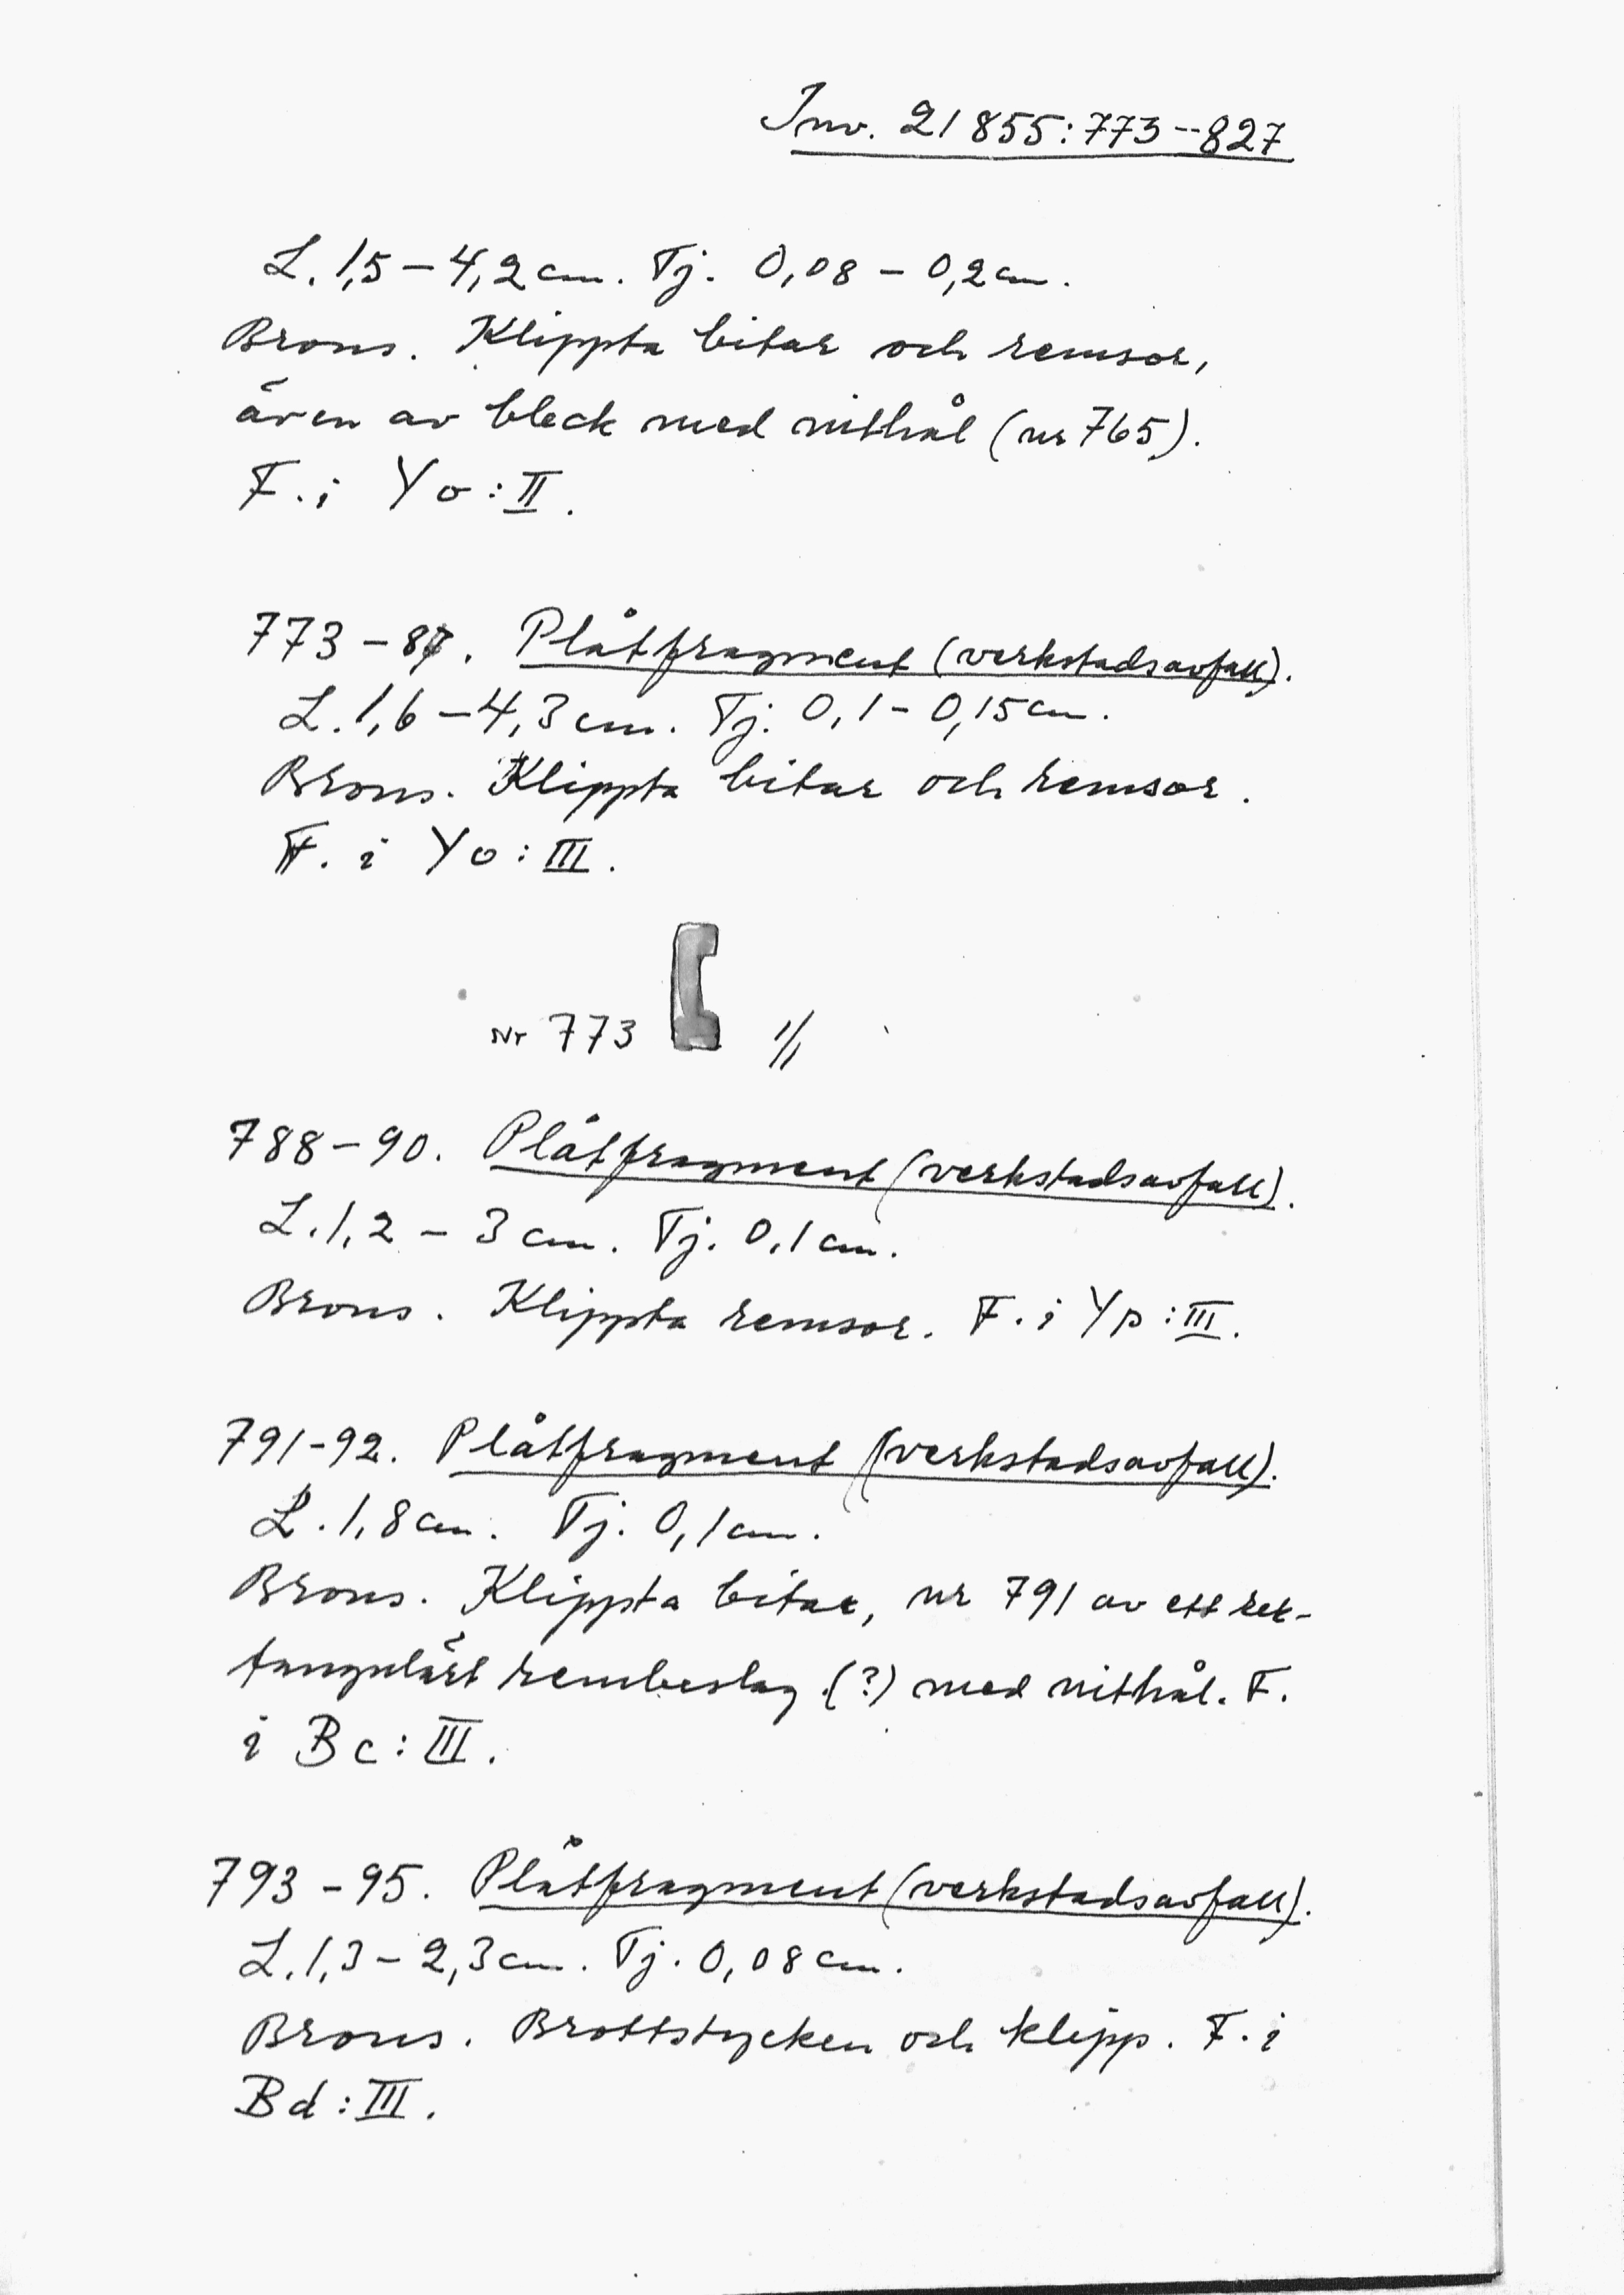 Inv. 21855:773--827
L. 1,5 – 4,2 cm. Tj. 0,08 – 0,2 cm.
Brons. Klippta bitar och remsor,
även av bleck med nithål (nr 765).
F. i Yo: II.
773 – 87. Plåtfragment (verkstadsavfall).
L. 1,6 – 4,3 cm. Tj. 0,1 – 0,15 cm.
Brons. Klippta bitar och remsor.
F. i Yo: III.
Nr 773 1/1
788 – 90. Plåtfragment (verkstadsavfall).
L. 1,2 – 3 cm. Tj. 0,1 cm.
Brons. Klippta remsor. F. i Yp: III.
791-92. Plåtfragment (verkstadsavfall).
L. 1,8 cm. Tj. 0,1 cm.
Brons. Klippta bitar, nr 791 av ett rek-
tangulärt rembeslag (?) med nithål. F.
i Bc: III.
793 – 95. Plåtfragment (verkstadsavfall).
L. 1,3 – 2,3 cm. Tj. 0,08 cm.
Brons. Brottstycken och klipp. F. i
Bd: III.